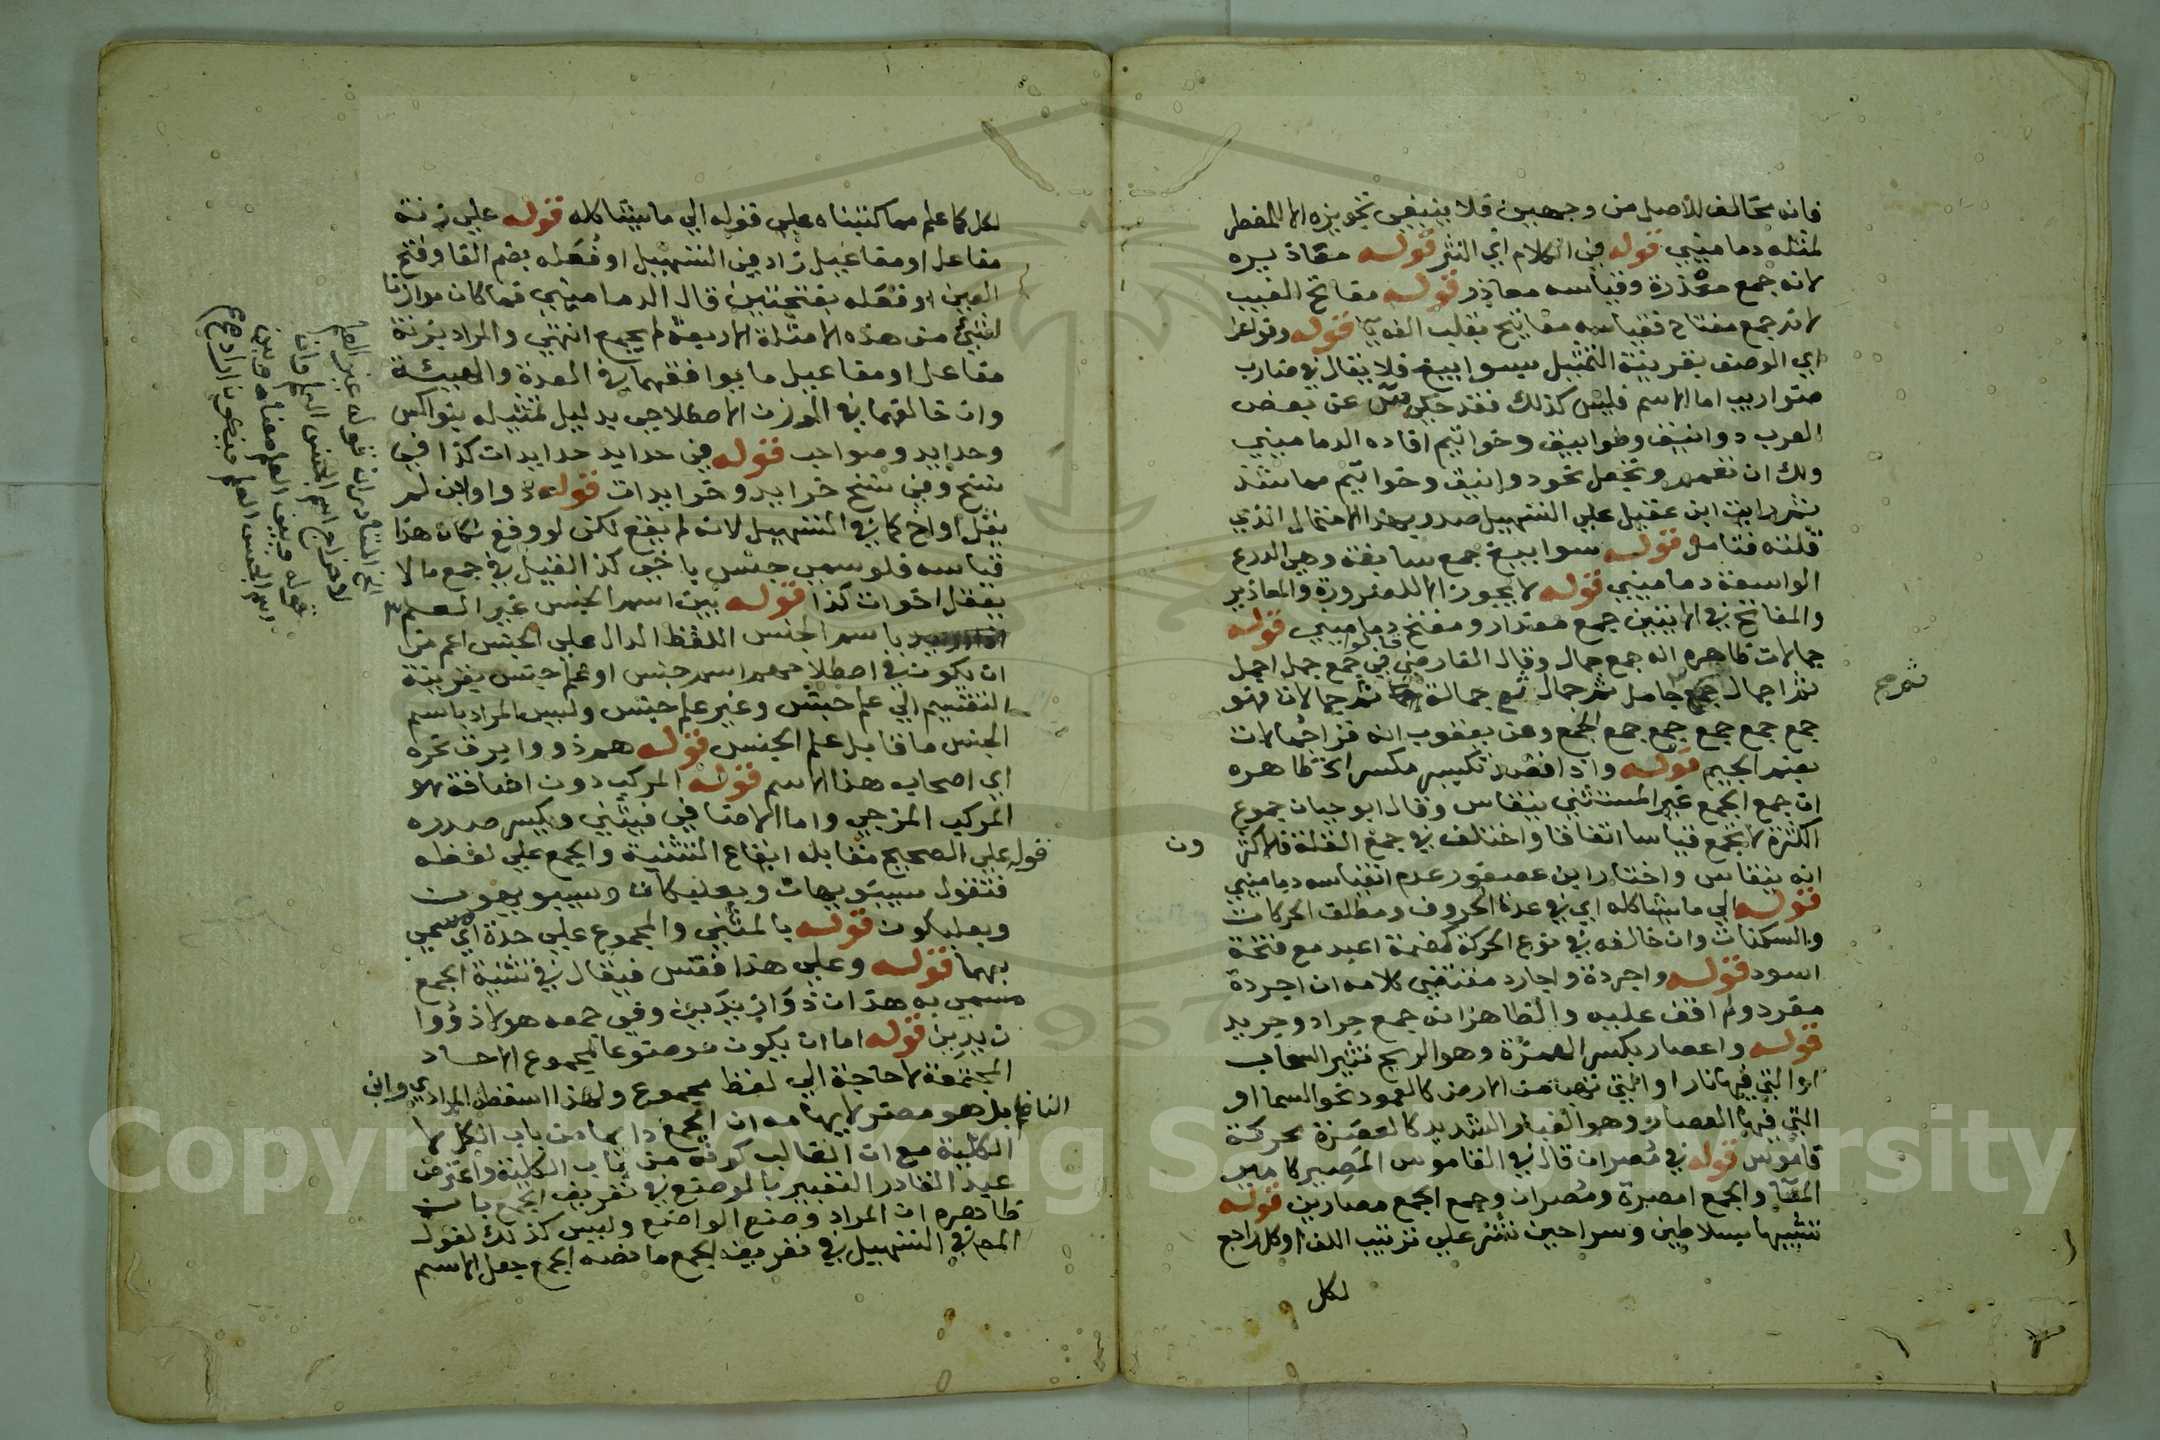 فانه مخالف للأصل من وجهين فلا ينبغي تجويزه الا للمضطر
لمثله دماميني قوله في الكلام اي النثر قوله معاذيره
لانه جمع معذرة وقياسه معاذر قوله مفاتح الغيب
لانه جمع مفتاح فقياسه مفاتيح بقلب الفه يا قوله وفواعل
اي الوصف بقرينة التمثيل بسوابيغ فلا يقال في ضارب
ضواريب اما الاسم فليس كذلك فقد حكي س عن بعض
العرب دوانيق وطوابيق وخواتيم افاده الدماميني
ولك ان تعمم وتجعل نحو دوانيق وخواتيم مما شذ
ثم رايت ابن عقيل علي التسهيل صدر بهذا الاحتمال الذي
قلته فتامل قوله سوابيغ جمع سابغة وهي الدرع
الواسعة دماميني قوله لا يجوز الا للضرورة والمعاذير
والمفاتح في الايتين جمع معذار ومفتح دماميني قوله
جمالات ظاهره انه جمع جمال وقال الفارضي قالوا في جمع جمل اجمل
ثم اجمال ثم جامل ثم جمال ثم جمالة ثم جمالات فهو
ثم صح
جمع جمع جمع جمع جمع الجمع وعن يعقوب انه قرا جُمالات
بضم الجيم قوله واذا قصد تكسير مكسر الخ ظاهره
ان جمع الجمع غير المستثني ينقاس وقال ابو حيان جموع
الكثرة لا تجمع قياسا اتفاقا واختلف في جمع القلة فالاكثر
ون
انه ينقاس واختار ابن عصفور عدم انقياسه دماميني
قوله الي ما يشاكله اي في عدة الحروف ومطلق الحركات
والسكنات وان خالفه في نوع الحركة كضمة اعبد مع فتحة
اسود قوله واجردة واجارد مقتضي كلامه ان اجردة
مفرد ولم اقف عليه والظاهر انه جمع جراد وجريد
قوله واعصار بكسر الهمزة وهو الريح تثير السحاب
او التي فيها نار او التي تهب من الارض كالعمود نحو السما او
التي فيها العصار وهو الغبار الشديد كالعصرة محركة
قاموس قوله في مُصران قال في القاموس المَصير كامير
المعا والجمع امصرة ومُصران وجمع الجمع مصارين قوله
تشبيها بسلاطين وسراحين نشر علي ترتيب اللف اوكل راجع
لكل
لكل كما علم مما كتبناه علي قوله الي ما يشاكله قوله علي زنة
مفاعل او مفاعيل زاد في التسهيل او فُعَله بضم الفا وفتح
العين او فَعَله بفتحتين قال الدماميني فما كان موازنا
لشيئ من هذه الامثلة الاربعة لم يجمع انتهي والمراد بزنة
مفاعل او مفاعيل ما يوافقهما في العدة والهيئة
وان خالفهما في الوزن الاصطلاحي بدليل تمثيله بنواكس
وحدايد وصواحب قوله في حدايد حدايدات كذا في
نسخ وفي نسخ خرايد وخرايدات قوله ذو اوابن لم
يقل اواخ كما في التسهيل لانه لم يقع لكن لو وقع لكان هذا
قياسه فلو سمي جنس باخي كذا القيل في جمع ما لا
يعقل اخوات كذا قوله بين اسم الجنس غير العلم
باسم الجنس اللفظ الدال علي الجنس اعم من
ان يكون في اصطلاحهم اسم جنس او علم جنس بقرينة
التقسيم الي علم جنس وغير علم جنس وليس المراد باسم
الجنس ما قابل علم الجنس قوله هم ذووا برق نحره
اي اصحاب هذا الاسم قوله المركب دون اضافة هو
المركب المزجي واما الاضافي فيثني ويكسر صدره
قوله علي الصحيح مقابله ايقاع التثنية والجمع علي لفظه
فتقول سيبويهان وبعلبكان وسيبويهون
وبعلبكون قوله بالمثني والمجموع علي حدة اي سمي
بهما قوله وعلي هذا فقس فيقال في تثنية الجمع
مسمي به هذان ذوا زيدين وفي جمعه هولاء ذووا
زيدين قوله اما ان يكون موضوعا لمجموع الاحاد
المجتمعة لا حاجة الي لفظ مجموع ولهذا اسقطه المرادي وابن
الناظم بل هو مضر لايهامه ان الجمع دايما من باب الكل لا
الكلية مع ان الغالب كونه من باب الكلية واعترض
عبد القادر التعبير بالموضوع في تعريف الجمع بان
ظاهره ان المراد وضع الواضع وليس كذلك لقول
المص في التسهيل في تعريف الجمع ما نصه الجمع جعل الاسم